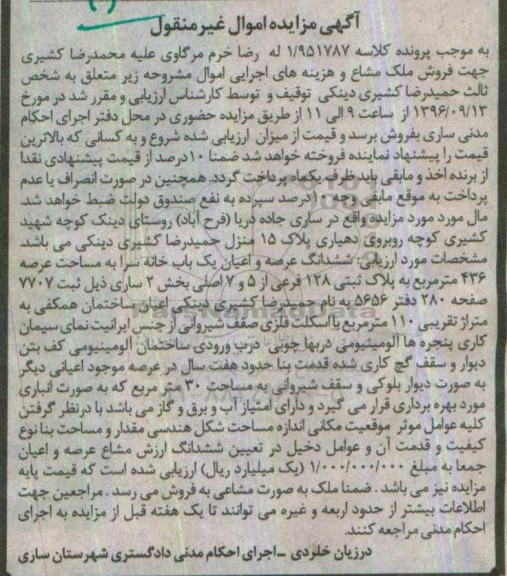 آگهی مزایده اموال غیر منقول
به موجب پرونده کلاسه ۱/۹۵۱۷۸۷ له رضا خرم مرگاوی علیه محمدرضا کشیری
جهت فروش ملک مشاع و هزینه های اجرایی اموال مشروحه زیر متعلق به شخص
ثالث حمیدرضا کشیری دینکی توقیف و توسط کارشناس ارزیابی و مقرر شد در مورخ
۱۳۹۶/۰۹/۱۳ از ساعت ۹ الی ۱۱ از طریق مزایده حضوری در محل دفتر اجرای احکام
مدنی ساری بفروش برسد و قیمت از میزان ارزیابی شده شروع و به کسانی که بالاترین
قیمت را پیشنهاد نماینده فروخته خواهد شد ضمنا ۱۰درصد از قیمت پیشنهادی نقدا
از برنده اخذ و مابقی باید ظرف یکماه پرداخت گردد. همچنین در صورت انصراف یا عدم
پرداخت به موقع مابقی وجه ۱۰درصد سپرده به نفع صندوق دولت ضبط خواهد شد.
مال مورد مورد مزایده واقع در ساری جاده دریا (فرح آباد) روستای دینک کوچه شهید
کشیری کوچه روبروی دهیاری پلاک ۱۵ منزل حمیدرضا کشیری دینکی می باشد.
مشخصات مورد ارزیابی: ششدانگ عرصه و اعیان یک باب خانه سرا به مساحت عرصه
۴۳۶ مترمربع به پلاک ثبتی ۱۲۸ فرعی از ۵ و ۷ اصلی بخش ۲ ساری ذیل ثبت ۷۷۰۷
صفحه ۲۸۰ دفتر ۵۶۵۶ به نام حمیدرضا کشیری دینکی اعیان ساختمان همکفی به
متراژ تقریبی ۱۱۰ مترمربع با اسکلت فلزی صقف شیروانی از جنس ایرانیت نمای سیمان
کاری پنجره ها آلومینیومی دربها چوبی درب ورودی ساختمان آلومینیومی کف بتن
دیوار و سقف گچ کاری شده قدمت بنا حدود هفت سال در عرصه موجود اعیانی دیگر
به صورت دیوار بلوکی و سقف شیروانی به مساحت ۳۰ متر مربع که به صورت انباری
مورد بهره برداری قرار می گیرد و دارای امتیاز آب و برق و گاز می باشد با درنظر گرفتن
کلیه عوامل موثر موقعیت مکانی اندازه مساحت شکل هندسی مقدار و مساحت بنا نوع
کیفیت و قدمت آن و عوامل دخیل در تعیین ششدانگ ارزش مشاع عرصه و اعیان
جمعا به مبلغ ۱/۰۰۰/۰۰۰/۰۰۰ (یک میلیارد ریال) ارزیابی شده است که قیمت پایه
مزایده نیز می باشد. ضمنا ملک به صورت مشاعی به فروش می رسد. مراجعین جهت
اطلاعات بیشتر از حدود اربعه و غیره می توانند تا یک هفته قبل از مزایده به اجرای
احکام مدنی مراجعه کنند.
درزیان خلردی - اجرای احکام مدنی دادگستری شهرستان ساری